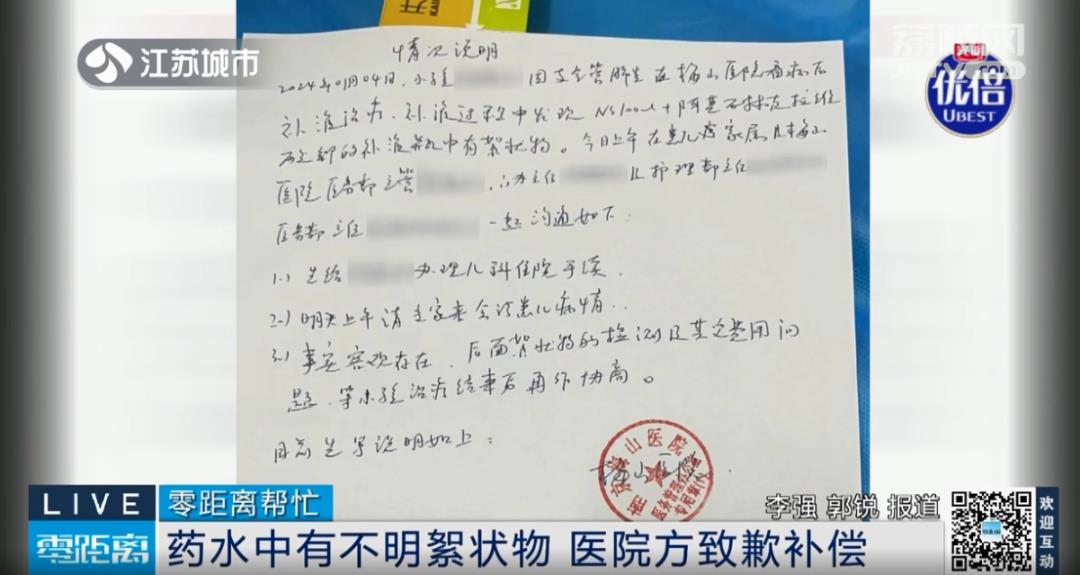 江苏城市
荔枝网
优倍
UBEST
情况说明
2024年01月04日，小孩 因支气管肺炎在梅山医院看病后
补液治疗，补液过程中发现NS100ml+阿莫西林克拉维
酸钾的补液瓶中有絮状物。今日上午在患儿家属及梅山
医院医务部主管 ，门办主任 及护理部主任
医务部主任 一起沟通如下：
1.) 先给 办理儿科住院手续，
2.) 明天上午请专家来会诊患儿病情，
3.) 事实客观存在，后面絮状物的检测及其它费用问
题，等小孩治疗结束后再作协商。
先写说明如上：
梅山医院
LIVE
零距离帮忙
李强 郭锐 报道
零距离
药水中有不明絮状物 医院方致歉补偿
欢迎互动